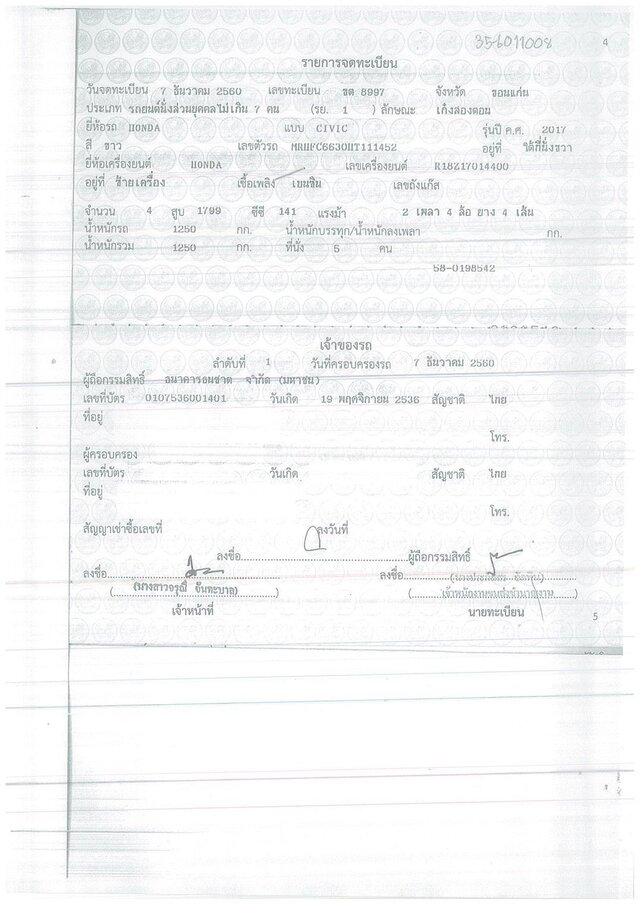 356011008
4
รายการจดทะเบียน
วันจดทะเบียน 7 ธันวาคม 2560 เลขทะเบียน ขต 8997 จังหวัด ขอนแก่น
ประเภท รถยนต์นั่งส่วนบุคคลไม่เกิน 7 คน (รย. 1 ) ลักษณะ เก๋งสองตอน
ยี่ห้อรถ HONDA แบบ CIVIC รุ่นปี ค.ศ. 2017
สี ขาว เลขตัวรถ MRHFC6630HT111452 อยู่ที่ ใต้ที่นั่งขวา
ยี่ห้อเครื่องยนต์ HONDA เลขเครื่องยนต์ R18Z17014400
อยู่ที่ ซ้ายเครื่อง เชื้อเพลิง เบนซิน เลขถังแก๊ส
จำนวน 4 สูบ 1799 ซีซี 141 แรงม้า 2 เพลา 4 ล้อ ยาง 4 เส้น
น้ำหนักรถ 1250 กก. น้ำหนักบรรทุก/น้ำหนักลงเพลา กก.
น้ำหนักรวม 1250 กก. ที่นั่ง 5 คน
58-0198542
เจ้าของรถ
ลำดับที่ 1 วันที่ครอบครองรถ 7 ธันวาคม 2560
ผู้ถือกรรมสิทธิ์ ธนาคารธนชาต จำกัด (มหาชน)
เลขที่บัตร 0107536001401 วันเกิด 19 พฤศจิกายน 2536 สัญชาติ ไทย
ที่อยู่
โทร.
ผู้ครอบครอง
เลขที่บัตร วันเกิด สัญชาติ ไทย
ที่อยู่
โทร.
สัญญาเช่าซื้อเลขที่ ลงวันที่
ลงชื่อ ผู้ถือกรรมสิทธิ์
ลงชื่อ ลงชื่อ
(นางสาวจรุณี จันทะบาล)
เจ้าหน้าที่
เจ้าพนักงานขนส่งชำนาญงาน
นายทะเบียน
5